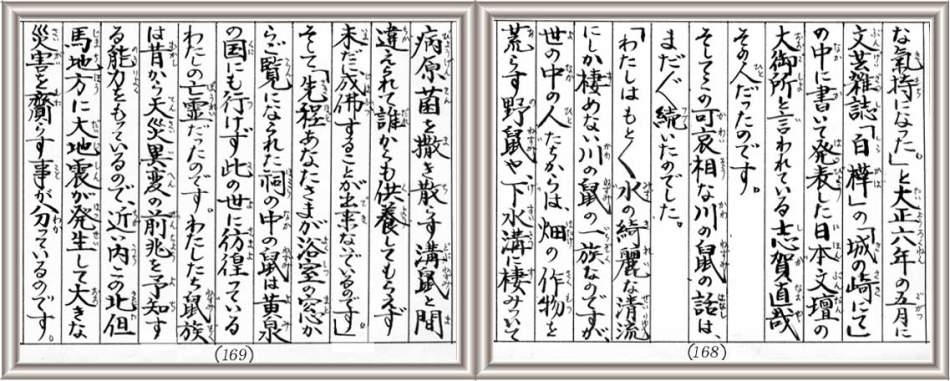 な気持になった。」と大正六年の五月に
文芸雑誌「白樺」の「城の崎にて」
の中に書いて発表した日本文壇の
大御所と言われている志賀直哉
その人だったのです。
そしてこの可哀相な川の鼠の話は、
まだ〱続いたのでした。
「わたしはもと〱水の綺麗な清流
にしか棲めない川の鼠の一族なのですが、
世の中の人たちからは、畑の作物を
荒らす野鼠や、下水溝に棲みついて
(168)
病原菌を撒き散らす溝鼠と間
違えられて誰からも供養してもらえず
未だに成佛することが出来ないでいるのです」
そして「先程あなたさまが浴室の窓か
らご覧になられた祠の中の鼠は黄泉
の国にも行けず此の世に彷徨っている
わたしの亡霊だったのです。わたしたち鼠族
は昔から天災異変の前兆を予知す
る能力をもっているので、近い内この北但
馬地方に大地震が発生して大きな
災害を齎らす事が分っているのです。
(169)